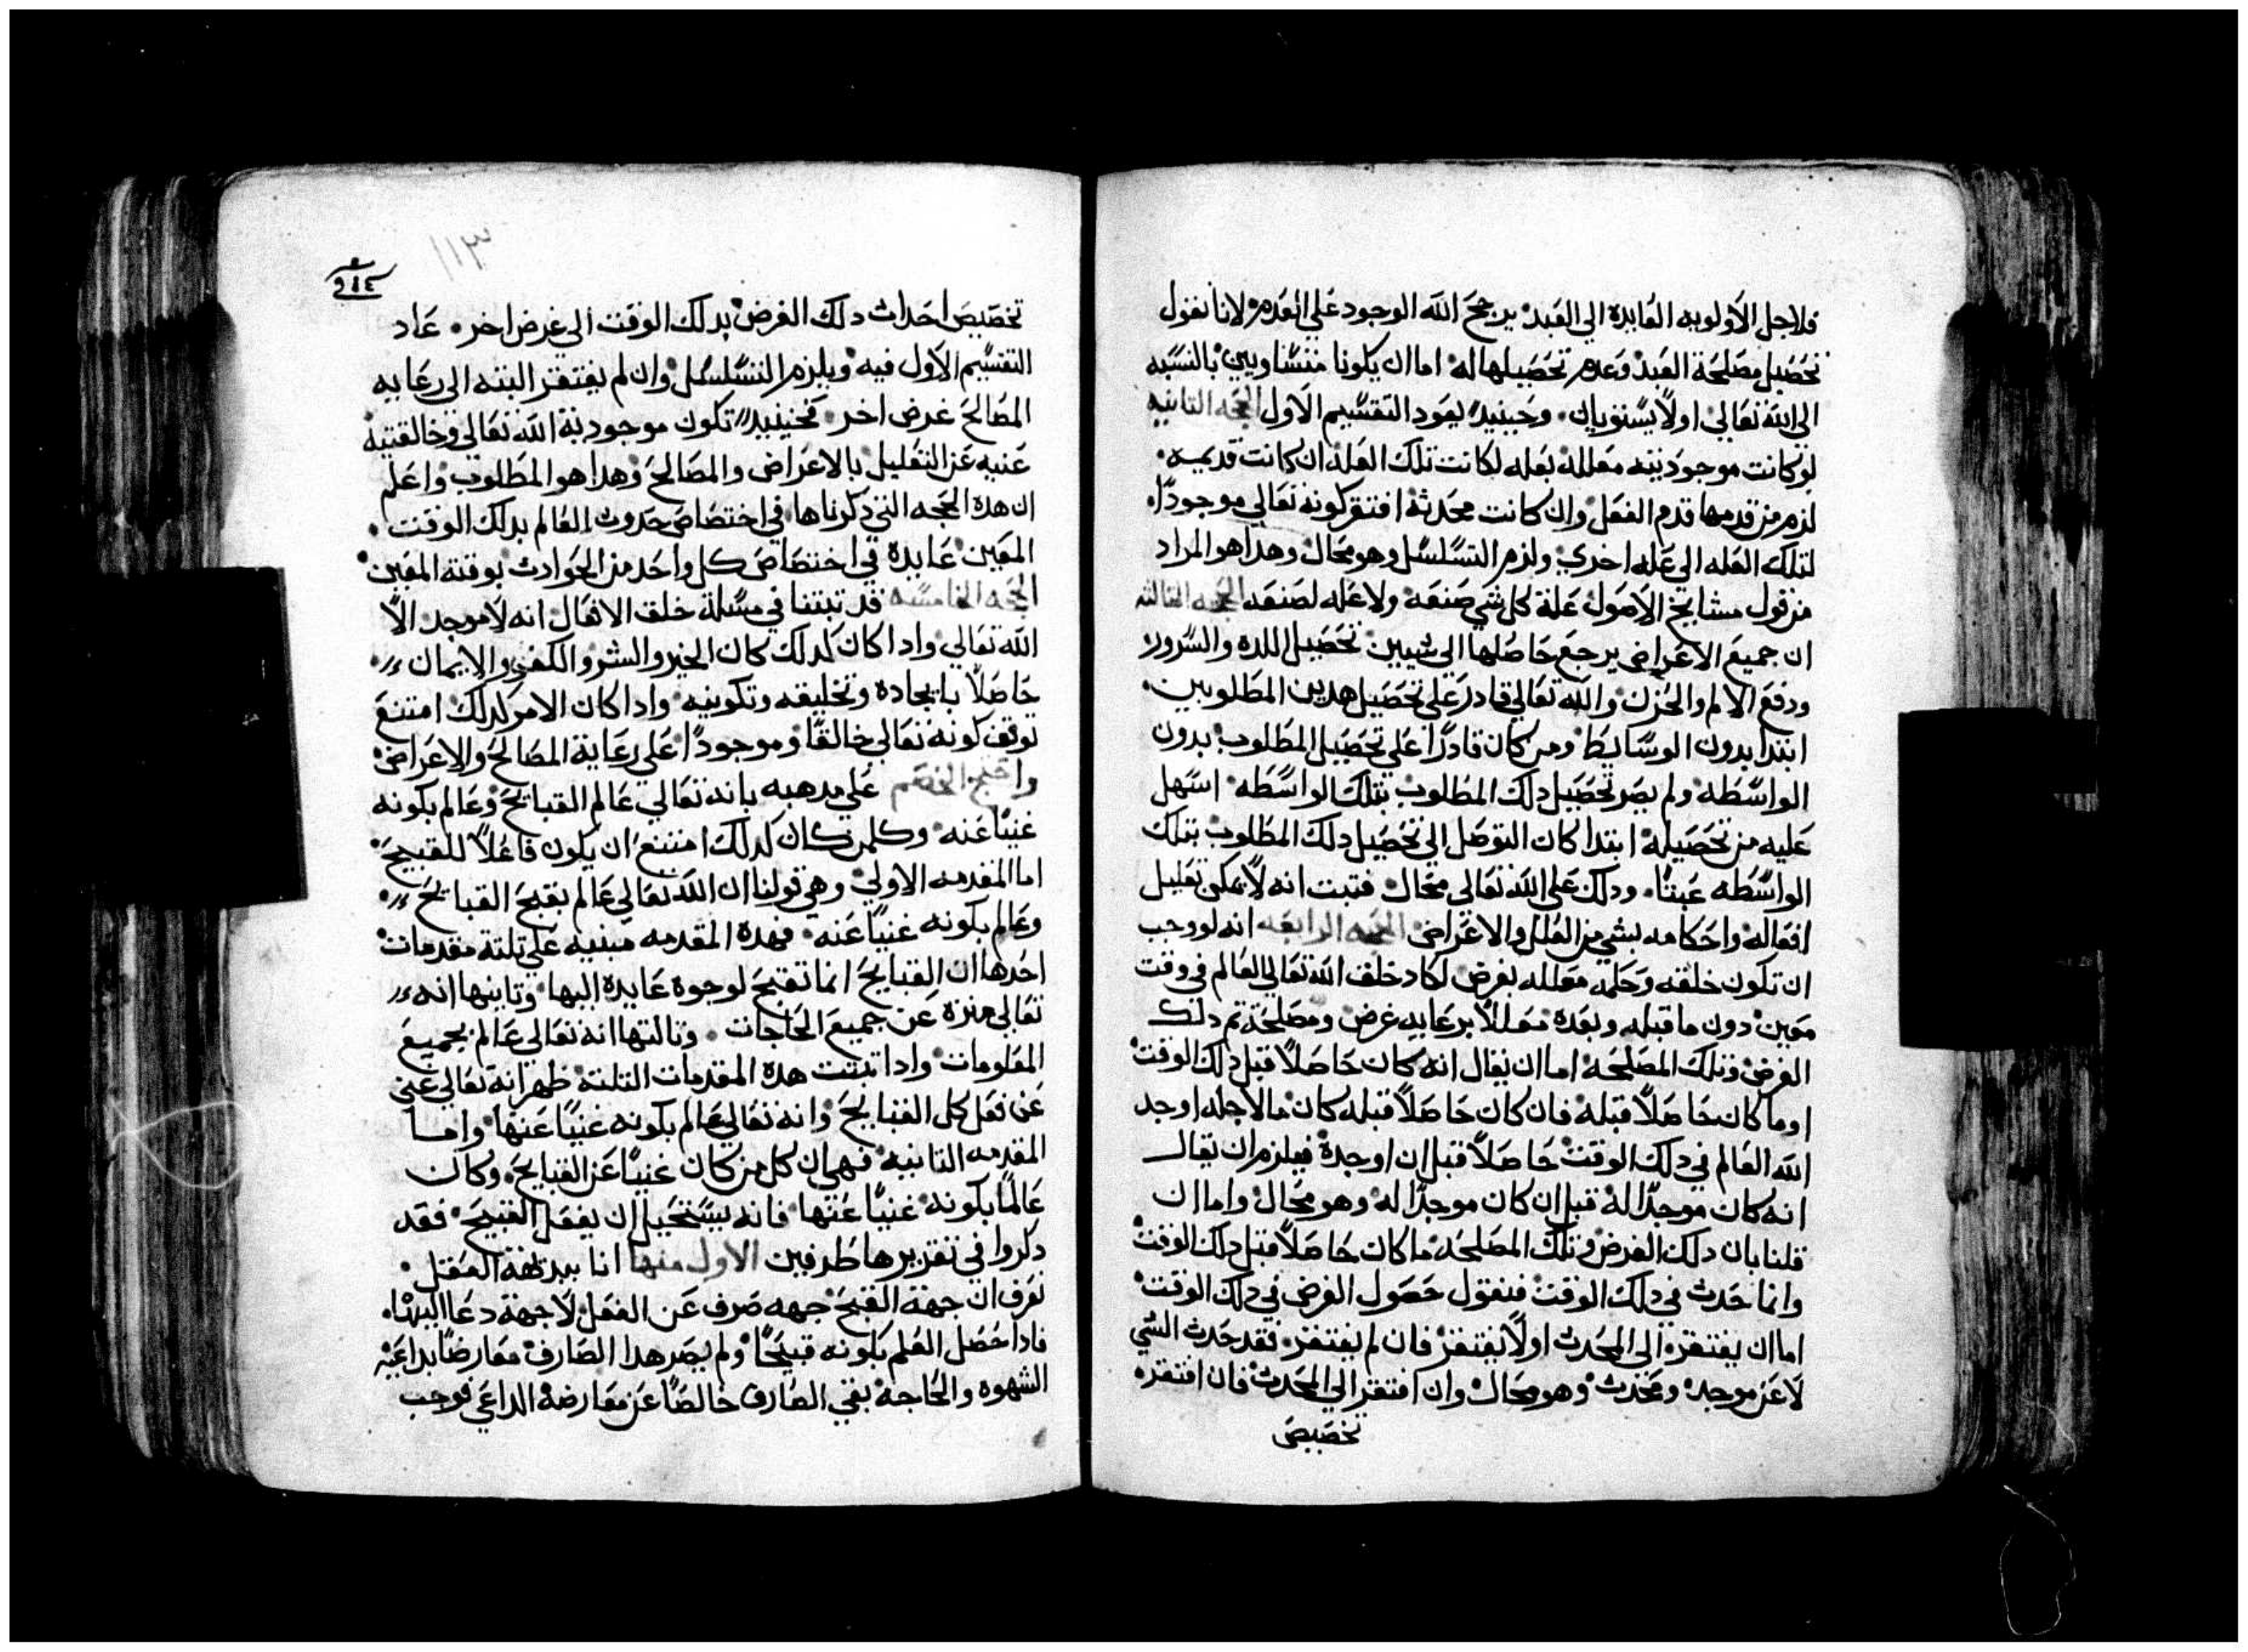 فلاجل الاولويه العايدة الي العبد يرجح الله الوجود علي العدم لانا نقول
تحصيل مصلحة العبد وعدم تحصيلها له اما ان يكونا متساويين بالنسبه
الي الله تعالي اولا يستويان وحينيد يعود التقسيم الاول الحجه التانيه
لو كانت موجوديته معللة بعله لكانت تلك العله ان كانت قديمه
لزم من قدمها قدم الفعل وان كانت محدثة افتقر كونه تعالي موجودا
لتلك العله الي عله اخري ولزم التسلسل وهو محال وهدا هو المراد
من قول مشايخ الاصول علة كل شي صنعه ولا عله لصنعه الحجه التالته
ان جميع الاعراض يرجع حاصلها الي شيين تحصيل اللده والسرور
ودفع الالم والحزن والله تعالي قادر علي تحصيل هدين المطلوبين
ابتدا بدون الوسايط ومن كان قادرا علي تحصيل المطلوب بدون
الواسطه ولم يصر تحصيل دلك المطلوب بتلك الواسطه اسهل
عليه من تحصيله ابتدا كان التوصل الي تحصيل دلك المطلوب بتلك
الواسطه عبتا ودلك علي الله تعالي محال فتبت انه لا يمكن تعليل
افعاله واحكامه بشي من العلل والاعراض الحجه الرابعه انه لو وجب
ان تكون خلقته وحكمه معلله بغرض لكاد خلق الله تعالي العالم في وقت
معين دون ما قبله وبعده معللا برعايه غرض ومصلحة تم دلك
الغرض وتلك المصلحه اما ان يقال انه كان حاصلا قبل دلك الوقت
او ما كان حاصلا قبله فان كان حاصلا قبله كان ما لاجله اوجد
الله العالم في دلك الوقت حاصلا قبل ان اوجده فيلزم ان يقال
انه كان موجدا له قبل ان كان موجدا له وهو محال واما ان
قلنا بان دلك الغرض وتلك المصلحه ما كان حاصلا قبل دلك الوقت
وانما حدث في دلك الوقت فنقول حصول الغرض في دلك الوقت
اما ان يفتقر الي المحدث اولا يفتقر فان لم يفتقر فقد حدث الشي
لا عن موجد ومحدث وهو محال وان افتقر الي المحدث فان افتقر
تخصيص
١١٣
تخصيص احداث دلك الغرض بدلك الوقت الي غرض اخر عاد
التقسيم الاول فيه ويلزم التسلسل وان لم يفتقر البته الي رعايه
المصالح غرض اخر فحينيد تكون موجودية الله تعالي وخالقتيه
غنيه عن التعليل بالاعراض والمصالح وهدا هو المطلوب واعلم
ان هده الحجه التي دكرناها في اختصاص حدوث العالم بدلك الوقت
المعين عايدة في اختصاص كل واحد من الحوادث بوقته المعين
الحجه الخامسه قد تبتنا في مسلة خلق الافعال انه لا موجد الا
الله تعالي وادا كان كدلك كان الخير والشر والكفر والايمان
حاصلا بايجاده وتخليقه وتكوينه وادا كان الامر كدلك امتنع
توقف كونه تعالي خالقا وموجودا علي رعاية المصالح والاعراض
واحتج الخصم علي مدهبه بانه تعالي عالم القبايح وعالم بكونه
غنيا عنه وكلمن كان كدلك امتنع ان يكون فاعلا للقبيح
اما المقدمه الاولي وهي قولنا ان الله تعالي عالم بقبح القبايح
وعالم بكونه غنيا عنه فهده المقدمه مبنيه علي تلتة مقدمات
احدها ان القبايح انما تقبح لوجوه عايده اليها وتانيها انه
تعالي منزه عن جميع الحاجات وتالتها انه تعالي عالم بجميع
المعلومات وادا تبتت هده المقدمات التلتة ظهر انه تعالي غني
عن فعل كل القبايح وانه تعالي عالم بكونه غنيا عنها واما
المقدمه التانيه فهي ان كل من كان غنيا عن القبايح وكان
عالما بكونه غنيا عنها فانه يستحيل ان يفعل القبيح فقد
دكروا في تقديرها طرفين الاول منها انا ببديهة العقل
نعرف ان جهة القبح جهه صرف عن الفعل لا جهة دعا اليها
فادا حصل العلم بكونه قبيحا ولم يصر هدا الصارف معارضا بداعية
الشهوه والحاجه بقي الصارف خالصا عن معارضه الداعي فوجب